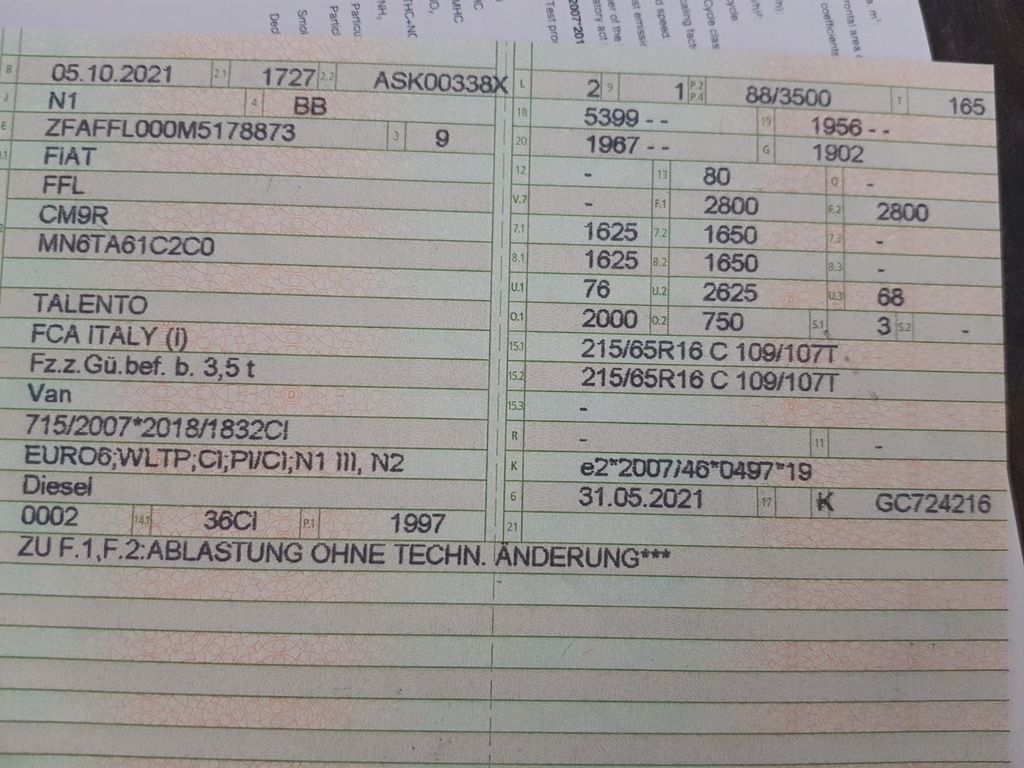 a. m²
rontal area
coefficients
/h):
/h)²
cycle
Cycle clas
caling fact
d speed:
st emissir
er of the
atory act
2007*201
Test proc
HC
MHC
THC+NO
NH₃
Particu
Particl
Smol
Ded
B 05.10.2021 2.1 1727 2.2 ASK00338X L 2 9 1 P.2 P.4 88/3500 T 165
J N1 4 BB 18 5399 - - 19 1956 - -
E ZFAFFL000M5178873 3 9 20 1967 - - G 1902
FIAT 12 - 13 80 Q -
FFL V.7 - F.1 2800 F.2 2800
CM9R 7.1 1625 7.2 1650 7.3 -
MN6TA61C2C0 8.1 1625 8.2 1650 8.3 -
U.1 76 U.2 2625 U.3 68
TALENTO O.1 2000 O.2 750 S.1 3 S.2 -
FCA ITALY (I) 15.1 215/65R16 C 109/107T
Fz.z.Gü.bef. b. 3,5 t 15.2 215/65R16 C 109/107T
Van 15.3 -
715/2007*2018/1832CI R - 11 -
EURO6;WLTP;CI;PI/CI;N1 III, N2 K e2*2007/46*0497*19
Diesel 6 31.05.2021 17 K GC724216
0002 14.1 36CI P.1 1997 21
ZU F.1,F.2:ABLASTUNG OHNE TECHN. ÄNDERUNG***